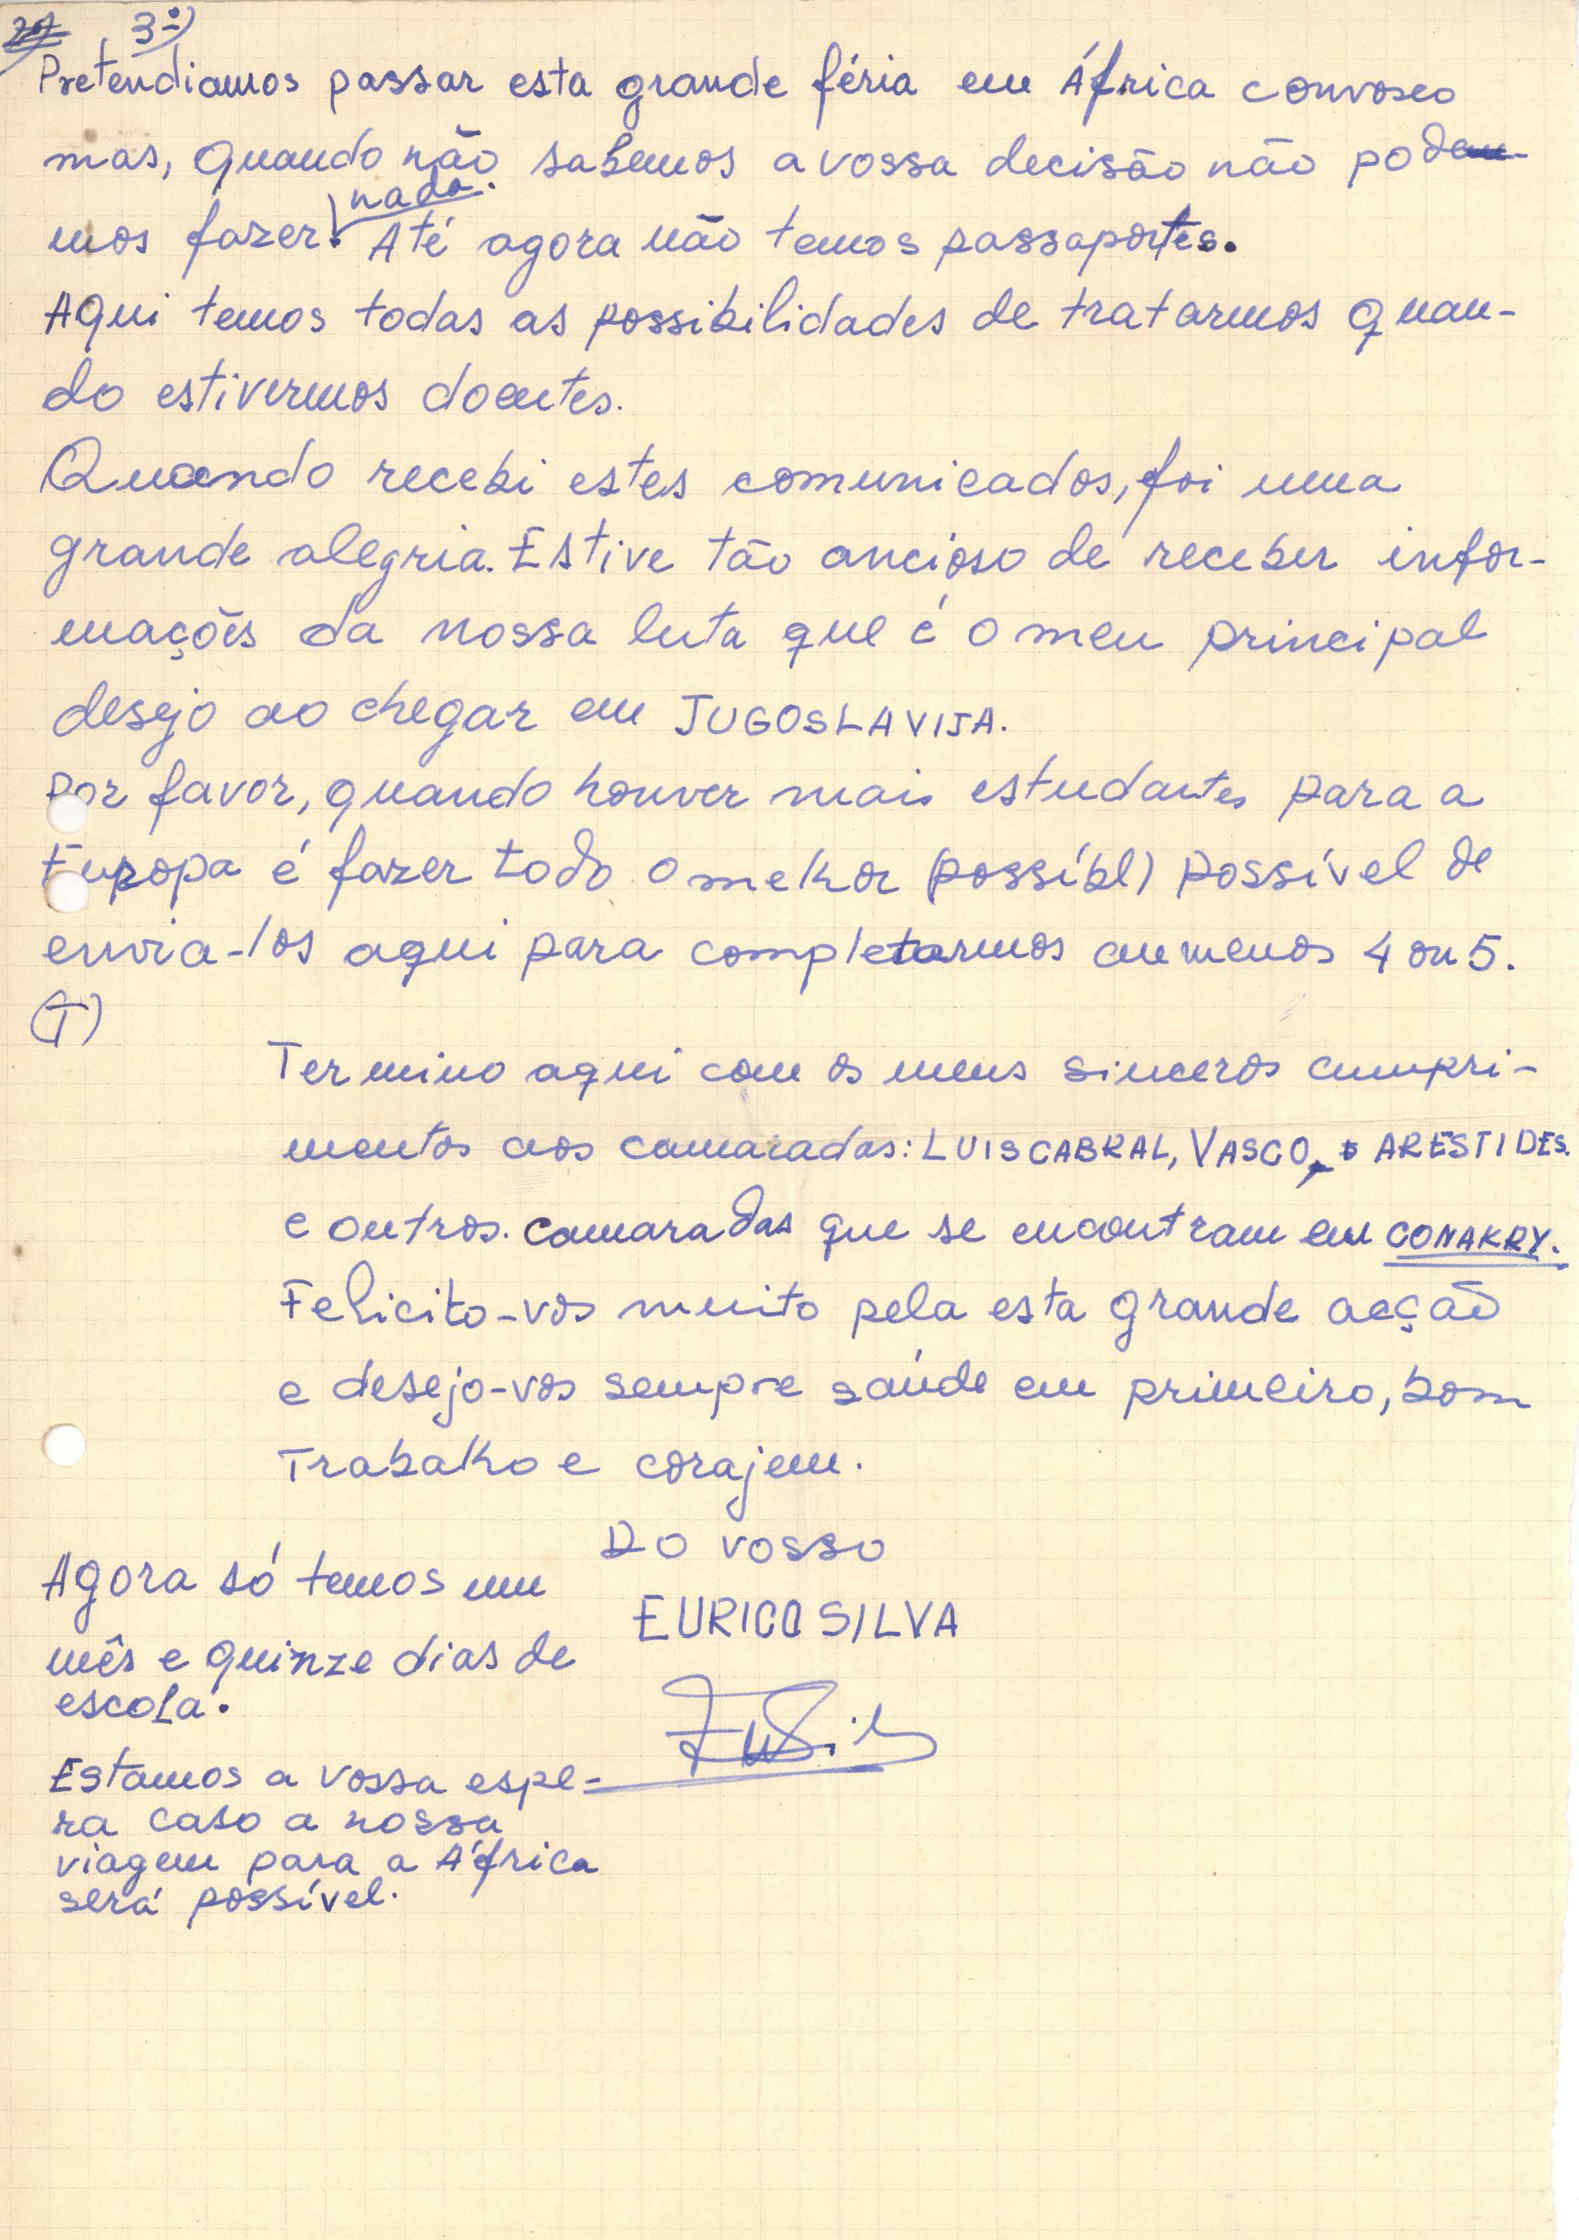 3º)
Pretendiamos passar esta grande féria em África convosco
mas, quando não sabemos a vossa decisão não pode
mos fazer nada. Até agora não temos passaportes.
Aqui temos todas as possibilidades de tratarmos quan-
do estivermos doentes.
Quando recebi estes comunicados, foi uma
grande alegria. Estive tão ancioso de receber infor-
mações da nossa luta que é o meu principal
desejo ao chegar em JUGOSLAVIJA.
Por favor, quando houver mais estudantes para a
Europa é fazer todo o melhor (possíbl) possível de
envia-los aqui para completarmos ao menos 4 ou 5.
(T)
Termino aqui com os meus sinceros cumpri-
mentos aos camaradas: LUIS CABRAL, VASCO, ARESTIDES.
e outros. camaradas que se encontram em CONAKRY.
Felicito-vos muito pela esta grande acção
e desejo-vos sempre saúde em primeiro, bom
Trabalho e corajem.
Do vosso
EURICO SILVA
Agora só temos um
mês e quinze dias de
escola.
Estamos a vossa espe-
ra caso a nossa
viagem para a África
será possível.